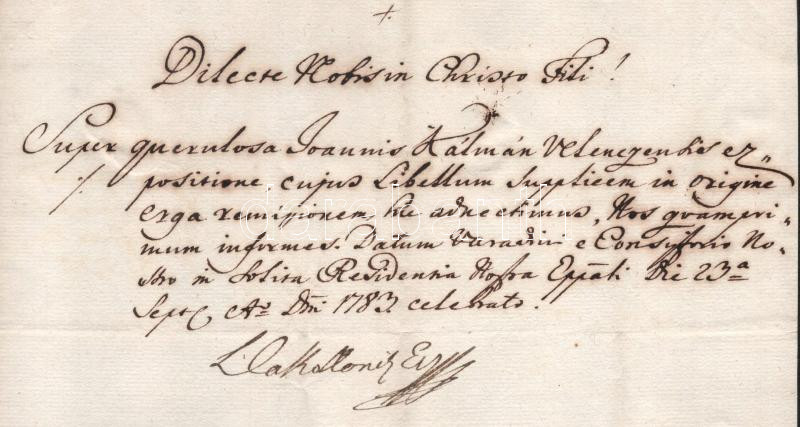 +
Dilecte Nobis in Christo Fili!
Super querulosa Joannis Kálmán Velenczensis ex„
./. positione, cujus Libellum Supplicem in origine
erga remissionem hic adnectimus, Nos quampri„
mum informes. Datum Varadini e Consistorio No„
stro in solita Residentia Nostra Eppali Die 23ª
Sept. Aº Dni 1783. celebrato.